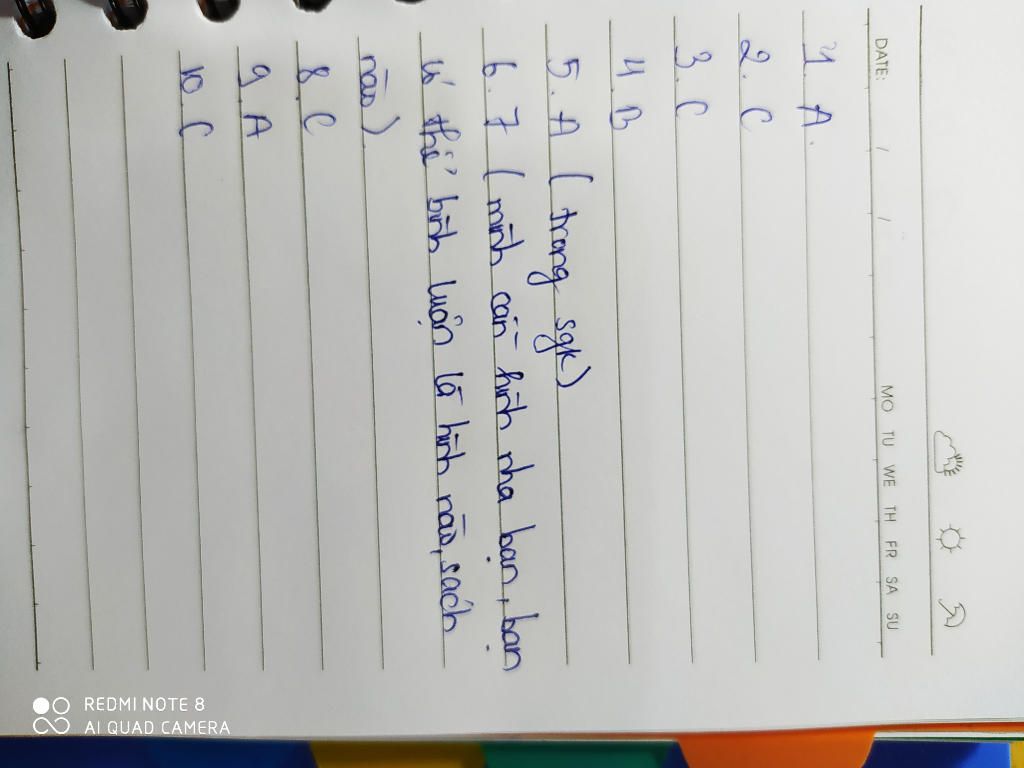 DATE: / /
MO TU WE TH FR SA SU
1. A.
2. C
3. C
4. B
5. A ( trong sgk)
6. 7 ( mình cần hình nha bạn, bạn
thể bình luận là hình nào, sách
nào)
8. C
9. A
10. C
REDMI NOTE 8
AI QUAD CAMERA